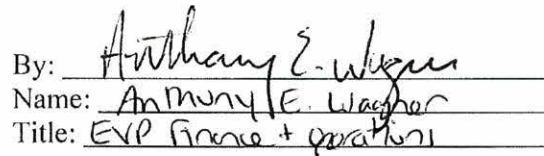 By: Anthony E. Wagner
Name: Anthony E. Wagner
Title: EVP Finance + operations